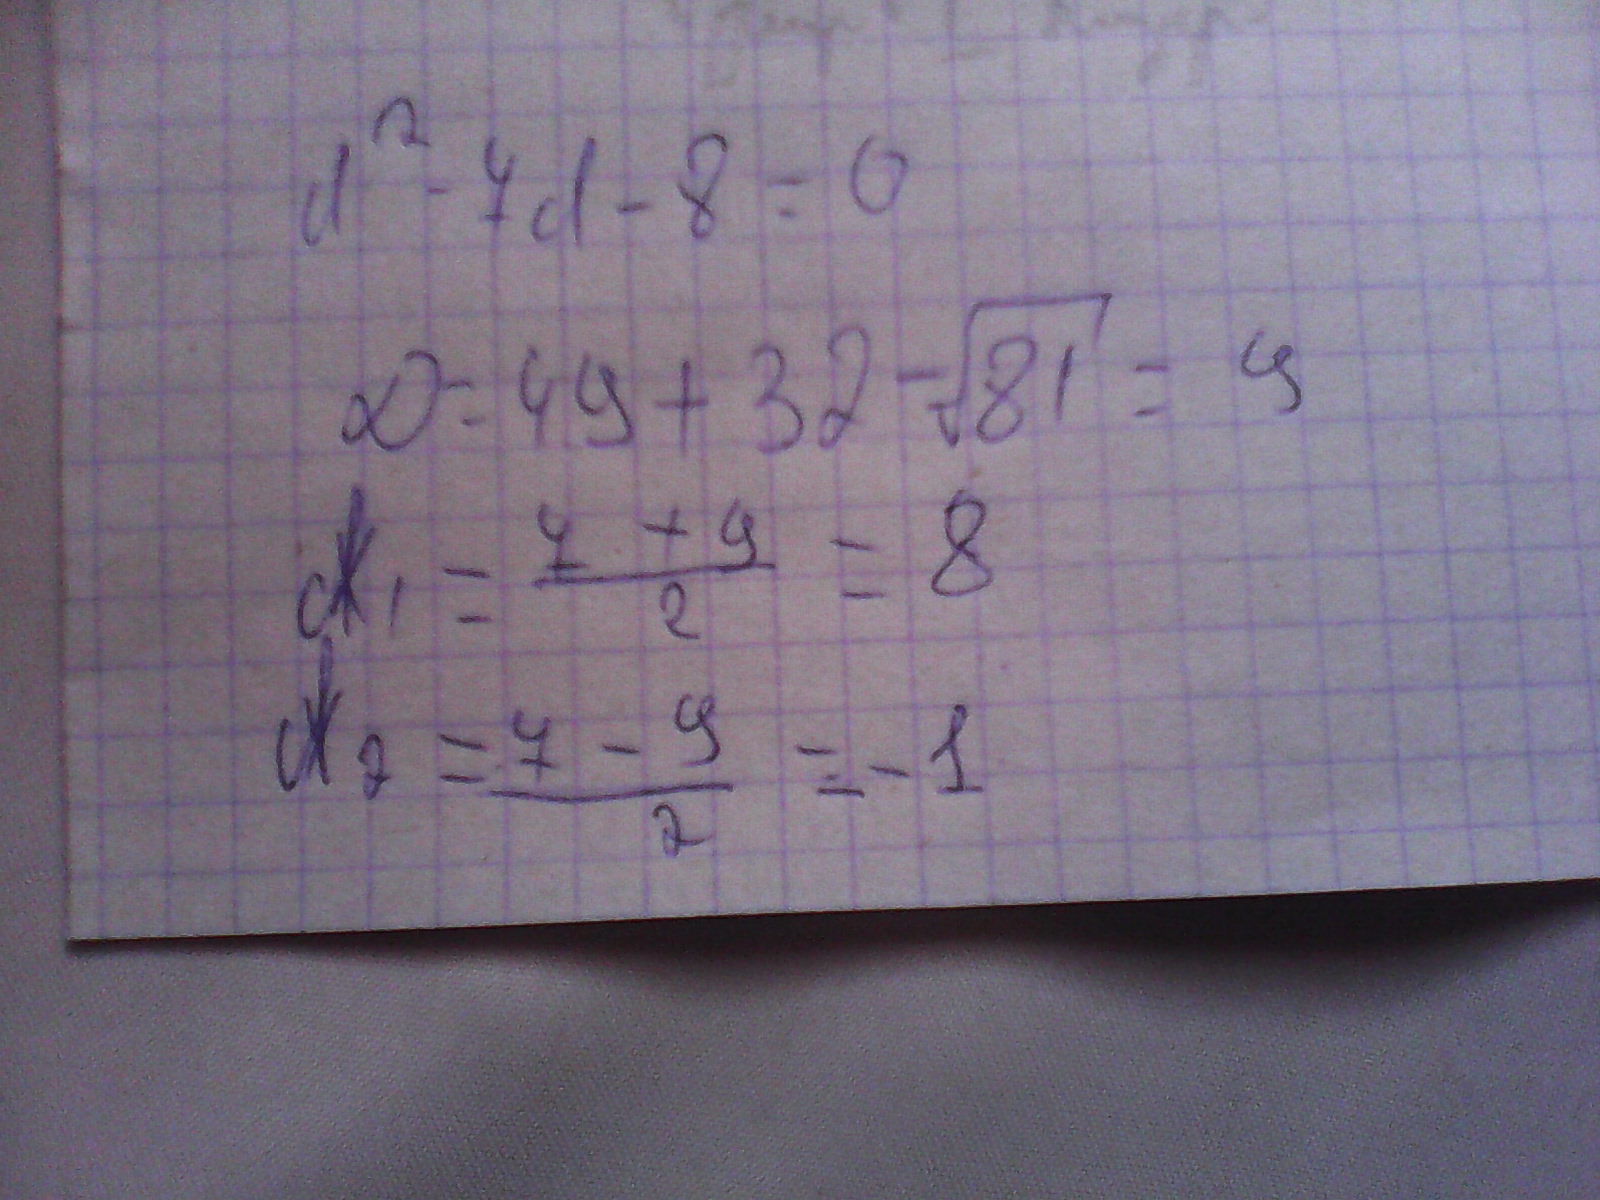 d² - 7d - 8 = 0
D = 49 + 32 = √81 = 9
d₁ = (7 + 9)/2 = 8
d₂ = (7 - 9)/2 = -1